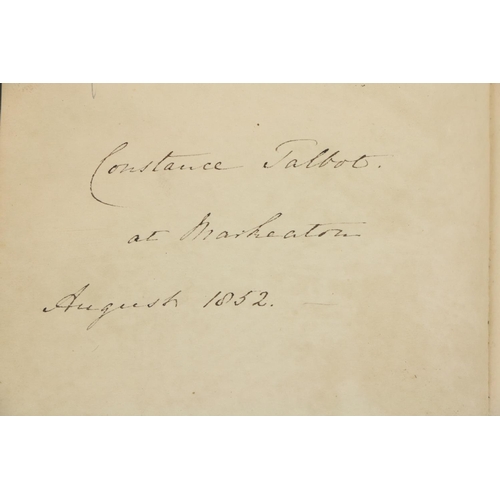 Constance Talbot.
at Markeaton
August 1852.